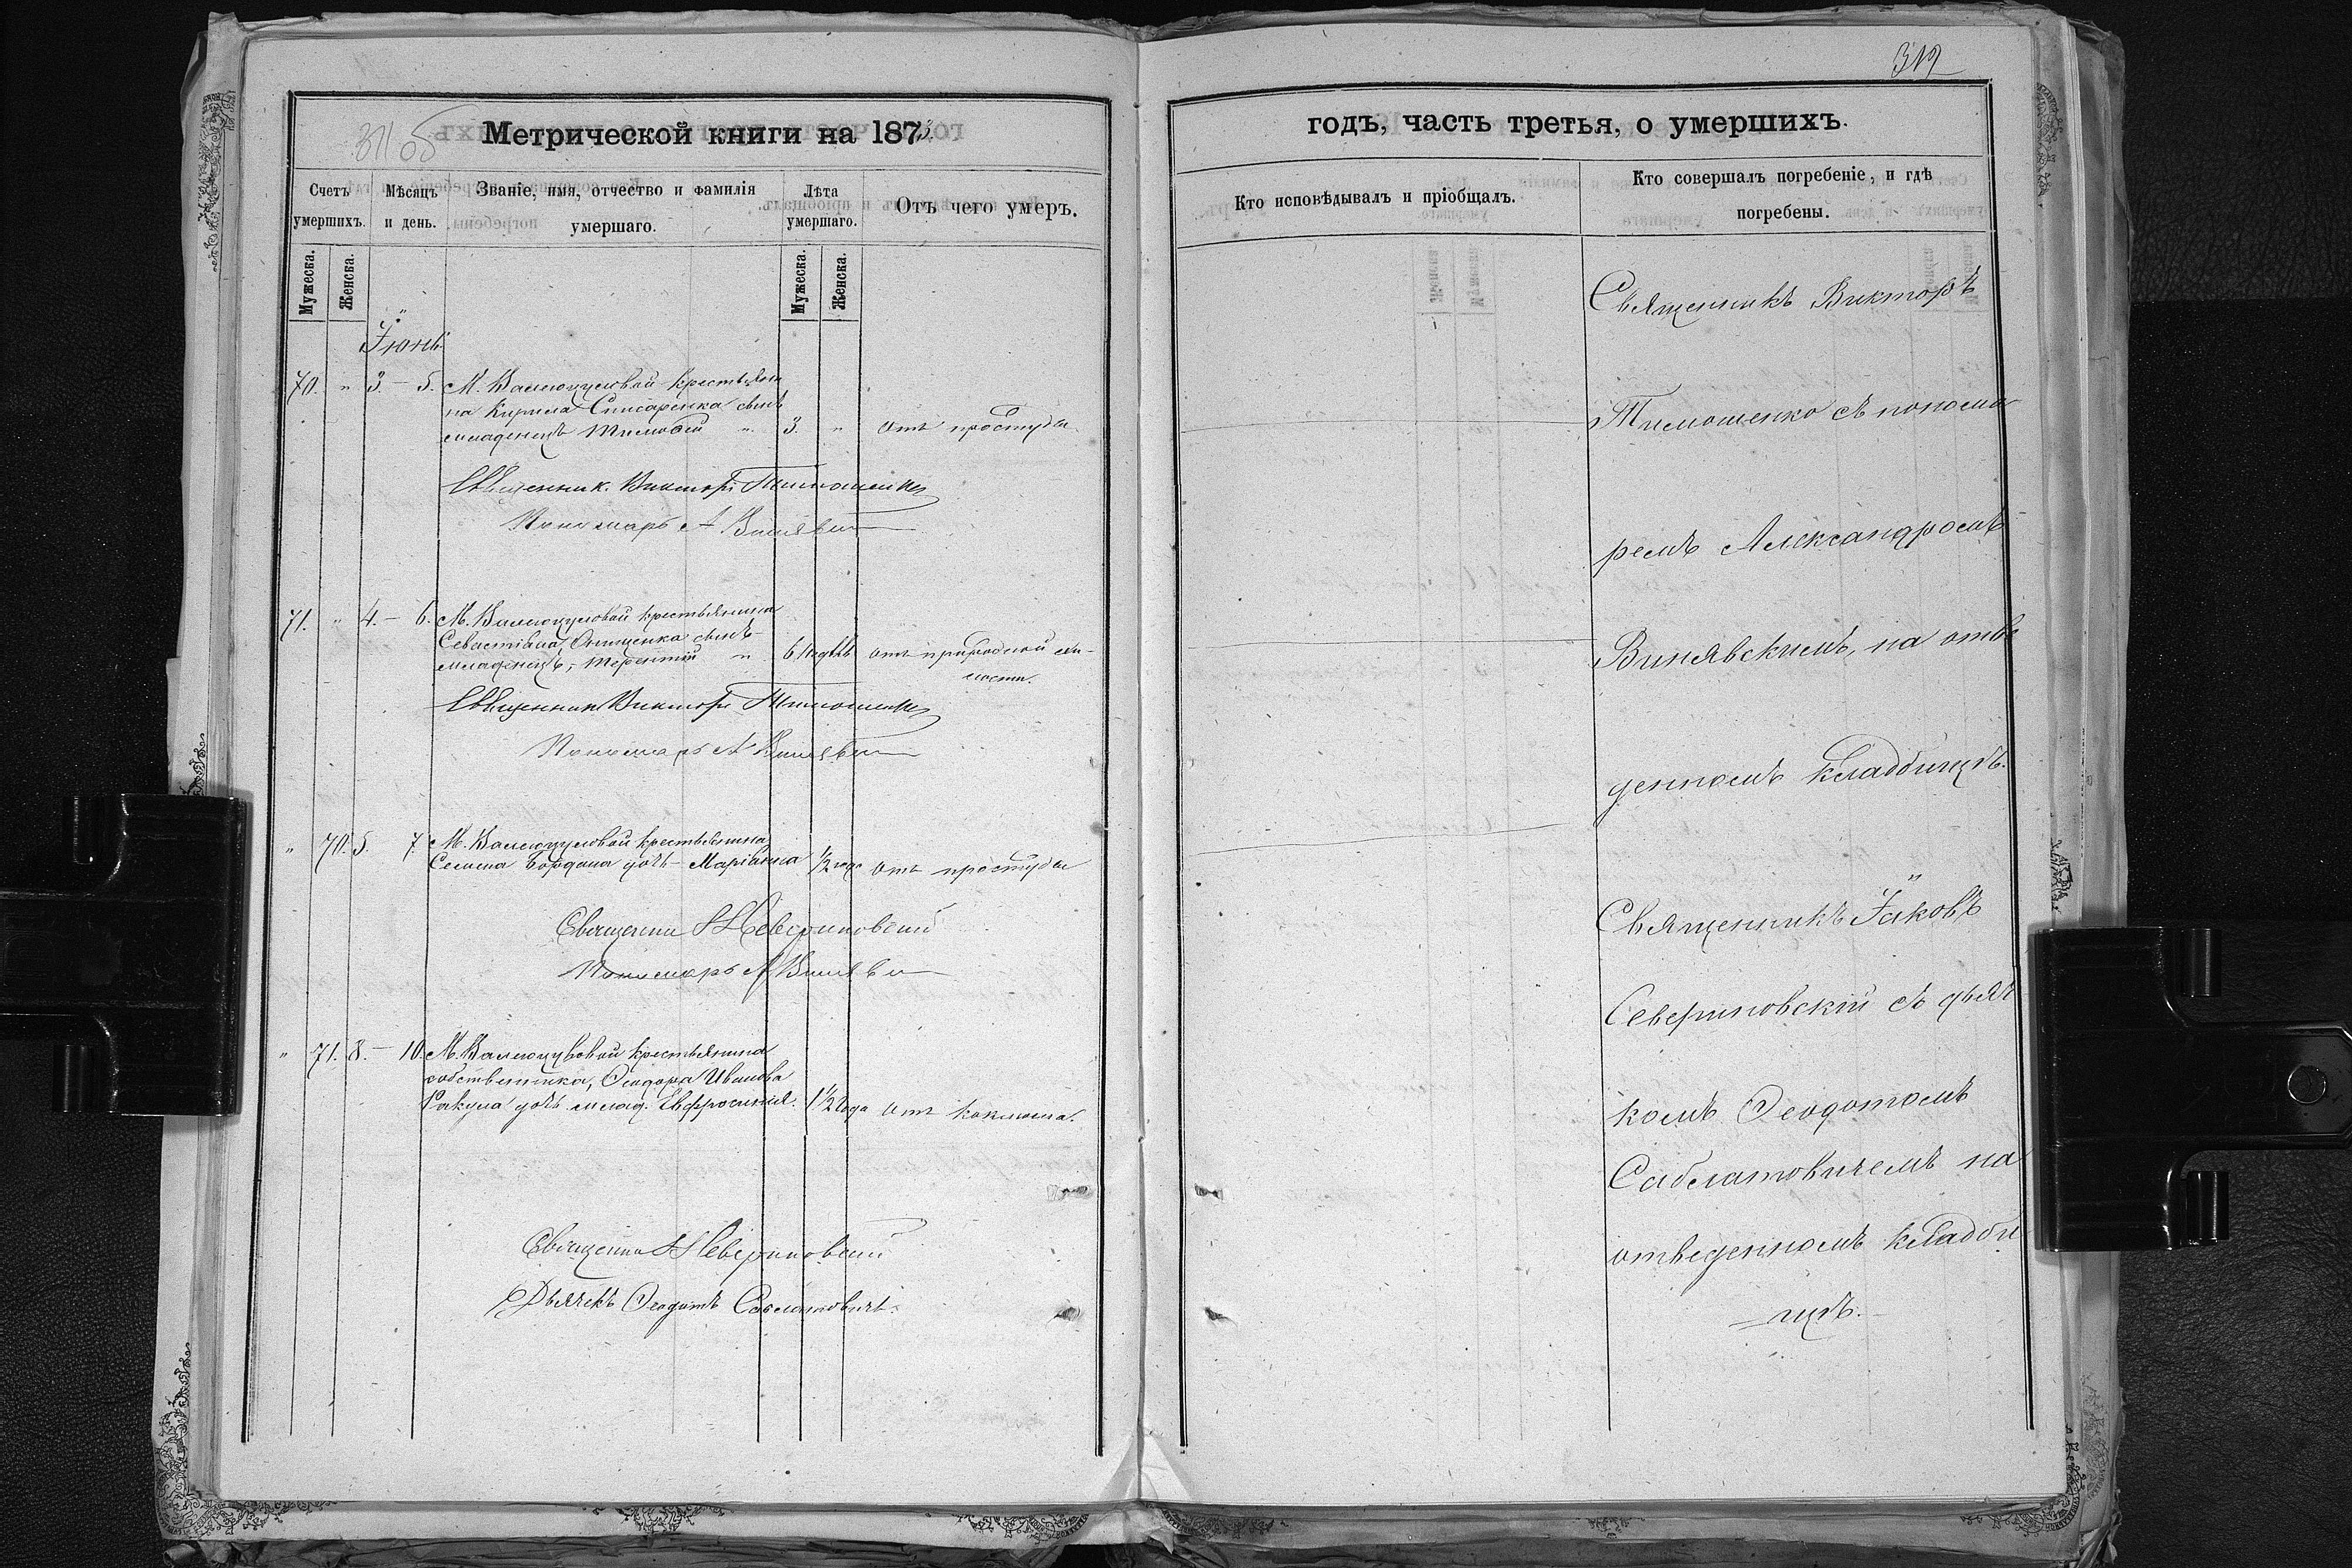 311 об
Метрической книги на 1873
Счетъ умершихъ.
Мѣсяцъ и день.
Званіе, имя, отчество и фамилія умершаго.
Лѣта умершаго.
Отъ чего умеръ.
Мужеска.
Женска.
Мужеска.
Женска.
Іюнь
70. " 3 – 5. М. Валегоцуловой крестьяни
на Кирила Списаренка сынъ
младенецъ Тимофей " 3. " отъ простуды
Священник. Викторъ Тимошенко
Пономарь А Винявск
71. " 4. – 6. М. Валегоцуловой крестьянина
Севастіана Онищенка сынъ –
младенецъ, Терентій " 6 недѣль отъ природной сла-
бости.
Священник Викторъ Тимошенко
Пономарь А Винявск
" 70. 5. 7. М. Валегоцуловой крестьянина
Семена Бордана дочь – Маріанна 1/2 года отъ простуды
Священник Я Севериновский
Пономарь А Винявск
" 71. 8. – 10. М. Валегоцуловой крестьянина
собственника, Ѳеодора Иванова
Ракула дочь млад. Евфросинія. 1 1/2 года отъ коклюша.
Священник Я Севериновский
Дьячекъ Ѳеодотъ Саблатовичъ.
312
годъ, часть третья, о умершихъ.
Кто исповѣдывалъ и пріобщалъ.
Кто совершалъ погребеніе, и гдѣ погребены.
Священникъ Викторъ
Тимошенко съ понома-
ремъ Александромъ
Винявскимъ, на отве
денномъ кладбищѣ.
Священникъ Іаковъ
Севериновскій съ дьяч
комъ Ѳеодотомъ
Саблатовичемъ на
отведенномъ кладби
щѣ.